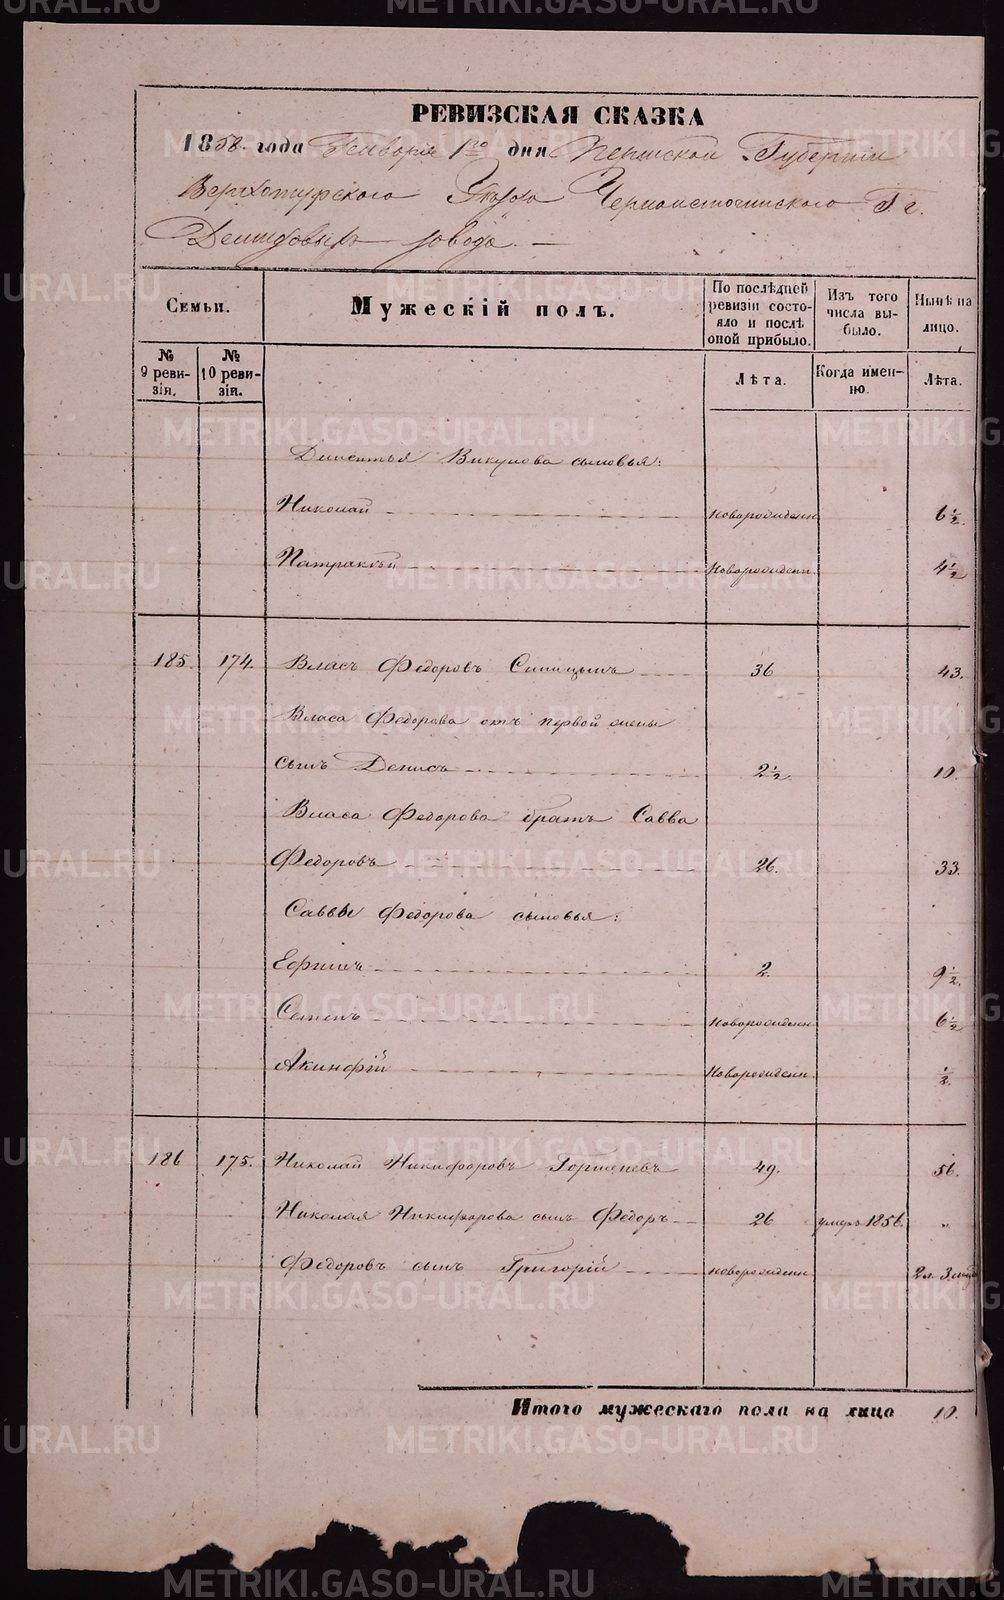 РЕВИЗСКАЯ СКАЗКА
1858 года Генваря 1го дня Пермской Губернiи
Верхотурскаго Уѣзда Черноисточинскаго Г. г.
Демидовыхъ завода. —
Семьи.
Мужескiй полъ.
По послѣдней ревизiи состояло и послѣ оной прибыло.
Изъ того числа выбыло.
Нынѣ на лицо.
№ 9 ревизiи.
№ 10 ревизiи.
Лѣта.
Когда именно.
Лѣта.
Викулова сыновья:
Николай новорожденн. 6½.
Патракѣй новорожденн. 4½
185. 174. Власъ Федоровъ Синицынъ 36 43.
Власа Федорова отъ первой жены
сынъ Денисъ 2½. 10.
Власа Федорова братъ Савва
Федоровъ 26. 33.
Саввы Федорова сыновья:
Ефимъ 2. 9½.
Семенъ новорожденн. 6½
Акинфiй новорожденн. ½.
186 175. Николай Никифоровъ Горшеневъ 49. 56.
Николая Никифорова сынъ Федоръ 26 умеръ 1856. „
Федоровъ сынъ Григорiй новорожденн. 2 л. 3 мѣс.
Итого мужескаго пола на лицо 10.
METRIKI.GASO-URAL.RU